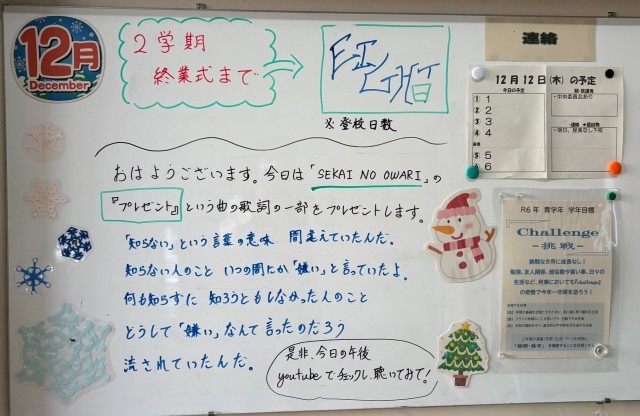 12月
December
2学期
終業式まで
EIGHT日
※登校日数
おはようございます。今日は「SEKAI NO OWARI」の
『プレゼント』という曲の歌詞の一部をプレゼントします。
「知らない」という言葉の意味 間違えていたんだ。
知らない人のこと いつの間にか「嫌い」と言っていたよ。
何も知らずに 知ろうともしなかった人のこと
どうして「嫌い」なんて言ったのだろう
流されていたんだ。
是非、今日の午後
youtubeでチェックし、聴いてみて!
連絡
12月12日(木)の予定
今日の予定
1
2
3
4
5
6
・中央委員会あり
R6年 青学年 学年目標
Challenge
-挑戦-